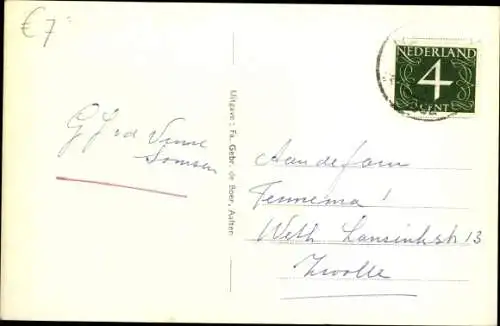 €7
NEDERLAND
4
CENT
G J v d Veene
Somsen
Uitgave: Fa. Gebr. de Boer, Aalten
Aan de fam
Fennema!
Weth. Lansinkstr 13
Zwolle